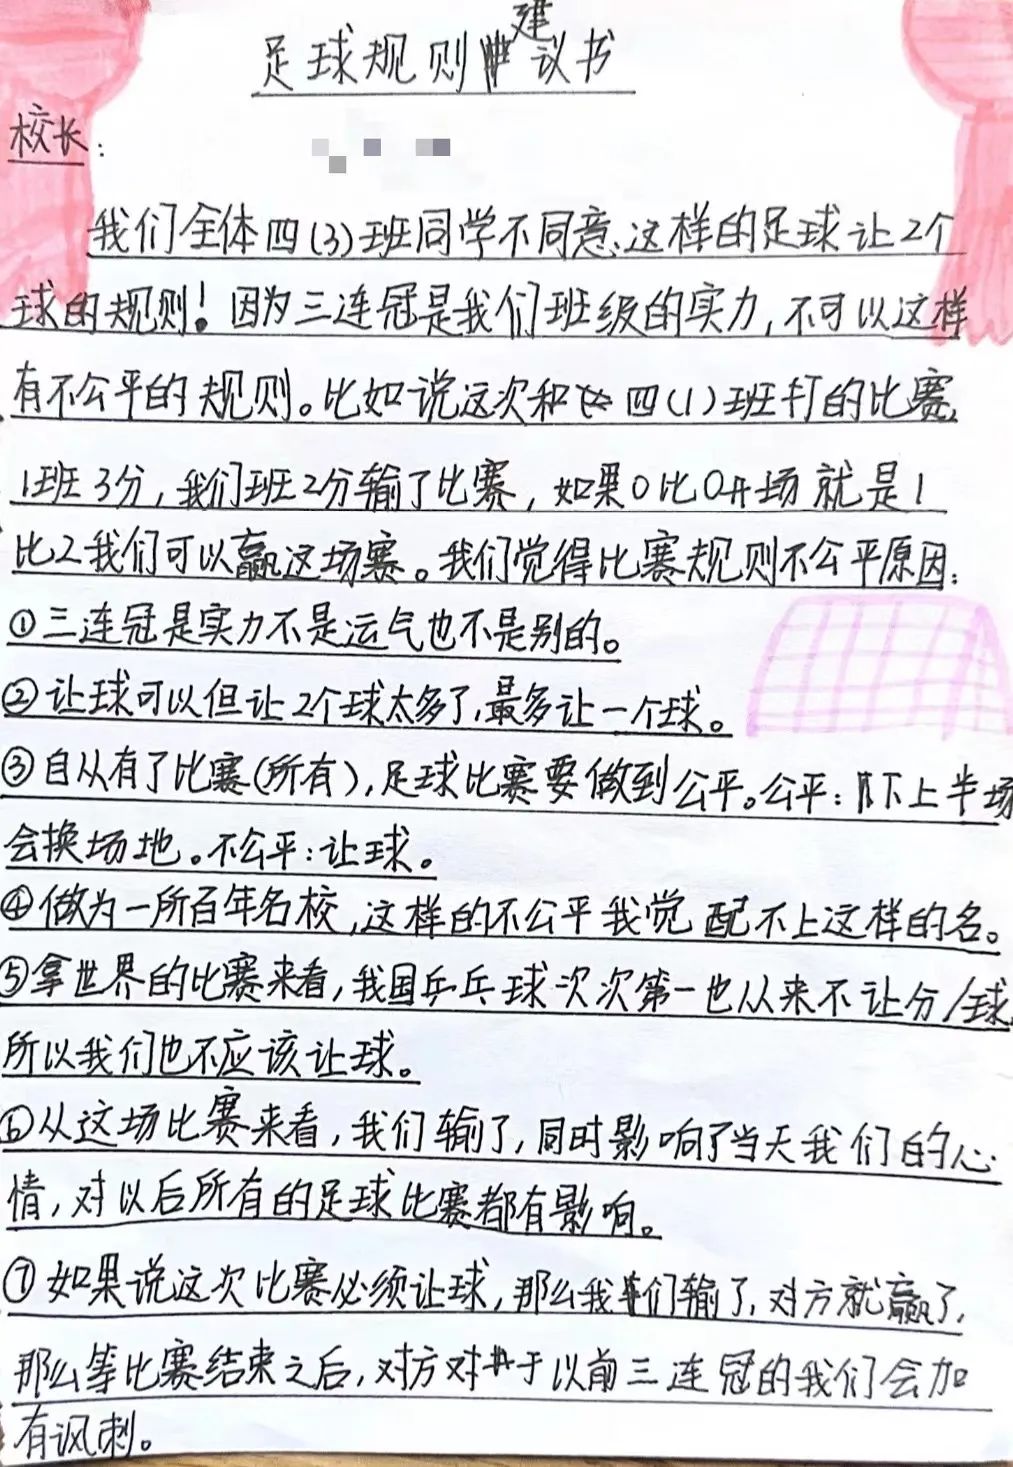 足球规则建议书
校长：
我们全体四(3)班同学不同意、这样的足球让2个
球的规则！因为三连冠是我们班级的实力，不可以这样
有不公平的规则。比如说这次和四(1)班打的比赛，
1班3分，我们班2分输了比赛，如果0比0开场就是1
比2我们可以赢这场赛。我们觉得比赛规则不公平原因：
①三连冠是实力不是运气也不是别的。
②让球可以但让2个球太多了，最多让一个球。
③自从有了比赛(所有)，足球比赛要做到公平。公平：下上半场
会换场地。不公平：让球。
④做为一所百年名校，这样的不公平我觉配不上这样的名。
⑤拿世界的比赛来看，我国乒乓球次次第一也从来不让分/球，
所以我们也不应该让球。
⑥从这场比赛来看，我们输了，同时影响了当天我们的心
情，对以后所有的足球比赛都有影响。
⑦如果说这次比赛必须让球，那么我们输了，对方就赢了，
那么等比赛结束之后，对方对于以前三连冠的我们会加
有讽刺。